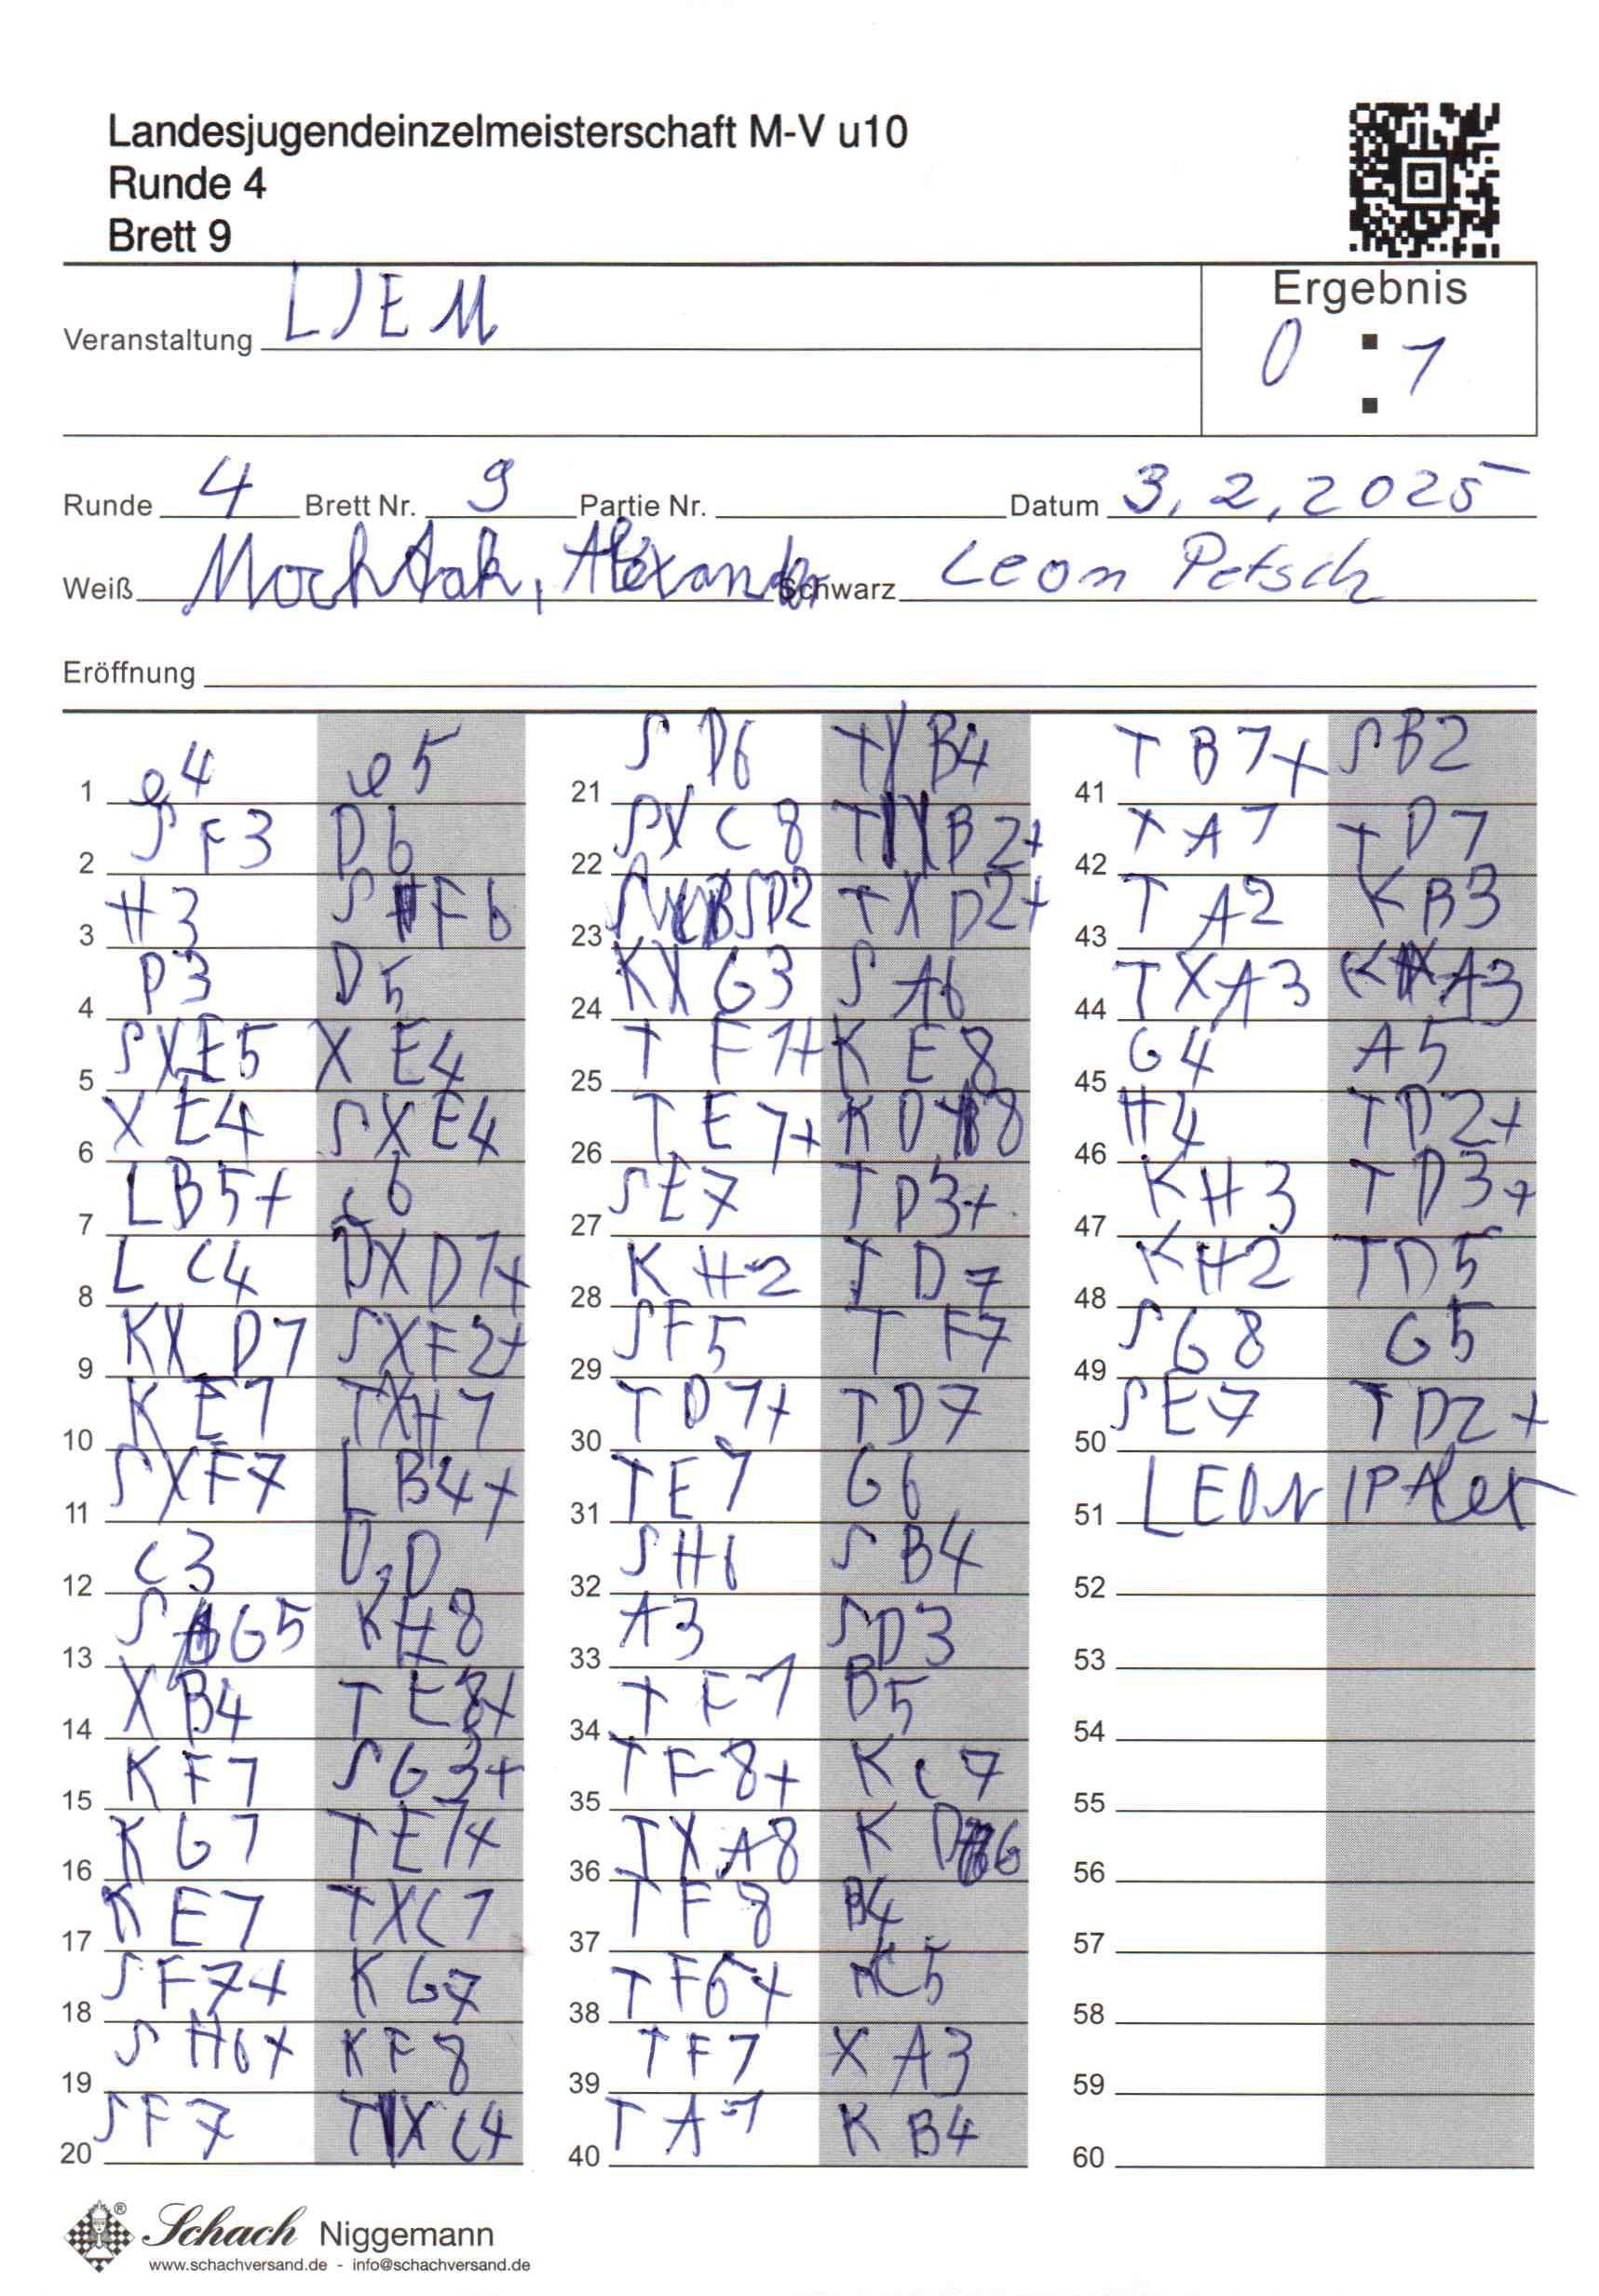 Landesjugendeinzelmeisterschaft M-V u10
Runde 4
Brett 9
Ergebnis
Veranstaltung LJEM
0 : 1
Runde 4 Brett Nr. 9 Partie Nr. Datum 3,2,2025
Weiß Mochtak, Alexander Schwarz Leon Petsch
Eröffnung
1 e4 e5
2 SF3 D6
3 H3 SF6
4 D3 D5
5 SXE5 XE4
6 XE4 SXE4
7 LB5+ c6
8 LC4 DXD1+
9 KXD1 SXF2+
10 KE1 TXH1
11 SXF7 LB4+
12 C3
13 SG5 KH8
14 XB4 TE8+
15 KF1 SG3+
16 KG1 TE1+
17 KE7 TXC1
18 SF7+ KG7
19 SH6+ KF8
20 SF7 TXC4
21 SD6 TXB4
22 SXC8 TXB2+
23 SD2 TXD2+
24 KXG3 SA6
25 TF1+ KE8
26 TE1+ KD8
27 SE7 TD3+
28 KH2 TD7
29 SF5 TF7
30 TD1+ TD7
31 TE1 G6
32 SH6 SB4
33 A3 SD3
34 TF1 B5
35 TF8+ KC7
36 TXA8 KD6
37 TF8 B4
38 TF6+ KC5
39 TF7 XA3
40 TA7 KB4
41 TB7+ SB2
42 TA7 TD7
43 TA2 KB3
44 TXA3 KXA3
45 G4 A5
46 H4 TD2+
47 KH3 TD3+
48 KH2 TD5
49 SG8 G5
50 SE7 TD2+
51 LEON PAlex
52
53
54
55
56
57
58
59
60
Schach Niggemann
www.schachversand.de - info@schachversand.de